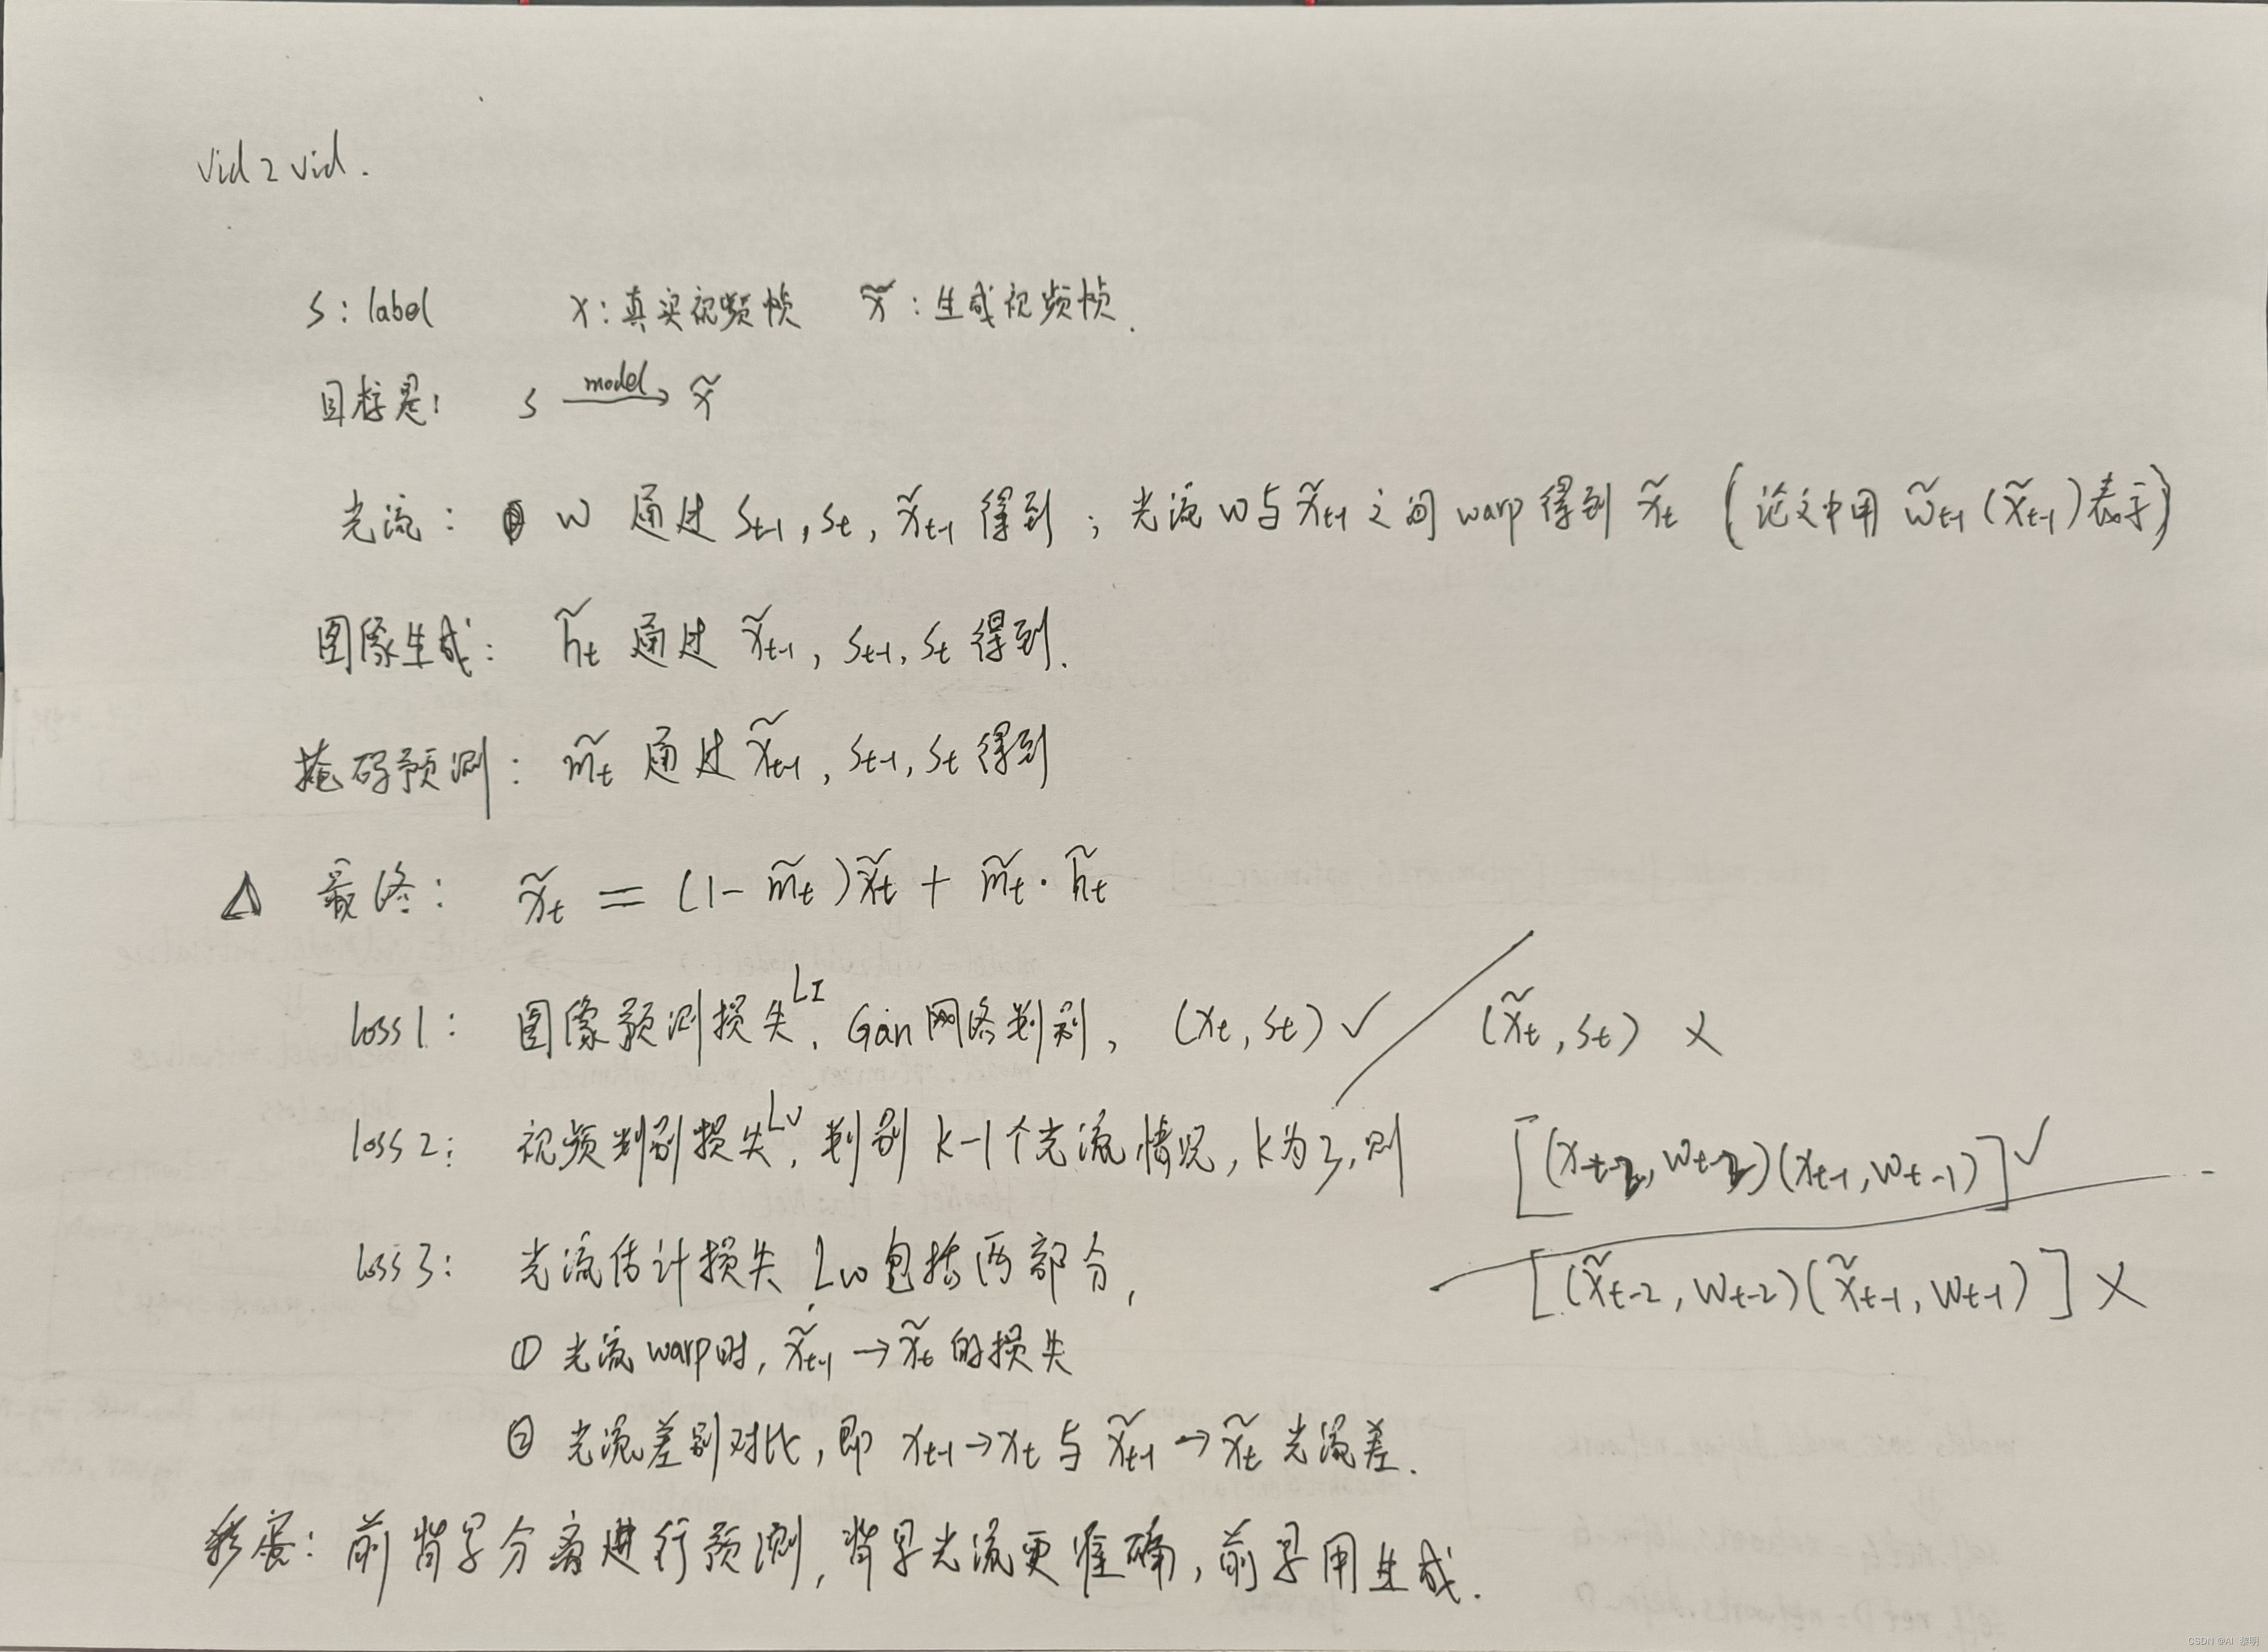 Vid2Vid.
s: label x: 真实视频帧 x̃: 生成视频帧.
目标是: s —model→ x̃
光流: w 通过 s_{t-1}, s_t, x̃_{t-1} 得到; 光流w与x̃_{t-1}之间warp得到 x̃_t (论文中用 w̃_{t-1}(x̃_{t-1})表示)
图像生成: h̃_t 通过 x̃_{t-1}, s_{t-1}, s_t 得到.
掩码预测: m̃_t 通过 x̃_{t-1}, s_{t-1}, s_t 得到
△ 最终: x̃_t = (1-m̃_t)x̃_t + m̃_t·h̃_t
loss1: 图像预测损失L_I, Gan网络判别, (x_t, s_t) ✓ / (x̃_t, s_t) ×
loss2: 视频判别损失L_V, 判别 k-1个光流情况, k为3, 则 [(x_{t-2}, w_{t-2})(x_{t-1}, w_{t-1})] ✓
[(x̃_{t-2}, w_{t-2})(x̃_{t-1}, w_{t-1})] ×
loss3: 光流估计损失 L_w包括两部分,
① 光流warp时, x̃_{t-1}→x̃_t 的损失
② 光流差别对比, 即 x_{t-1}→x_t 与 x̃_{t-1}→x̃_t 光流差.
彩蛋: 前背景分离进行预测, 背景光流更准确, 前景用生成.
CSDN @AI 黎明